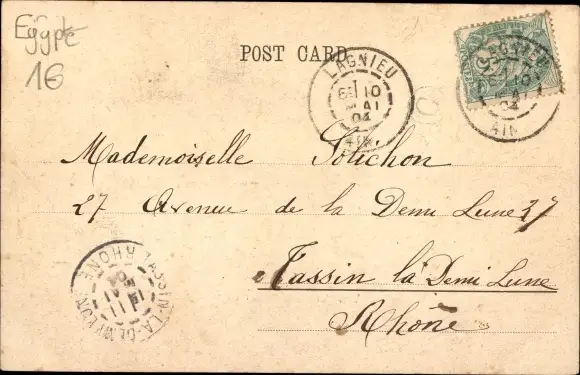 Egypte
16
POST CARD
LAGNIEU
10
MAI
04
AIN
LAGNIEU
10
MAI
04
AIN
Mademoiselle
27 Avenue de la Demi Lune 27
Tassin la Demi Lune
Rhône
TASSIN-LA-DEMI-LUNE
RHONE
11